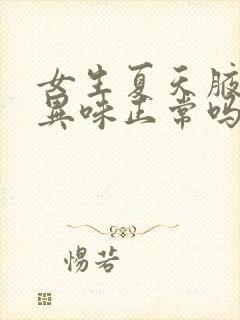 女生夏天腋
異味正常吗
惕若